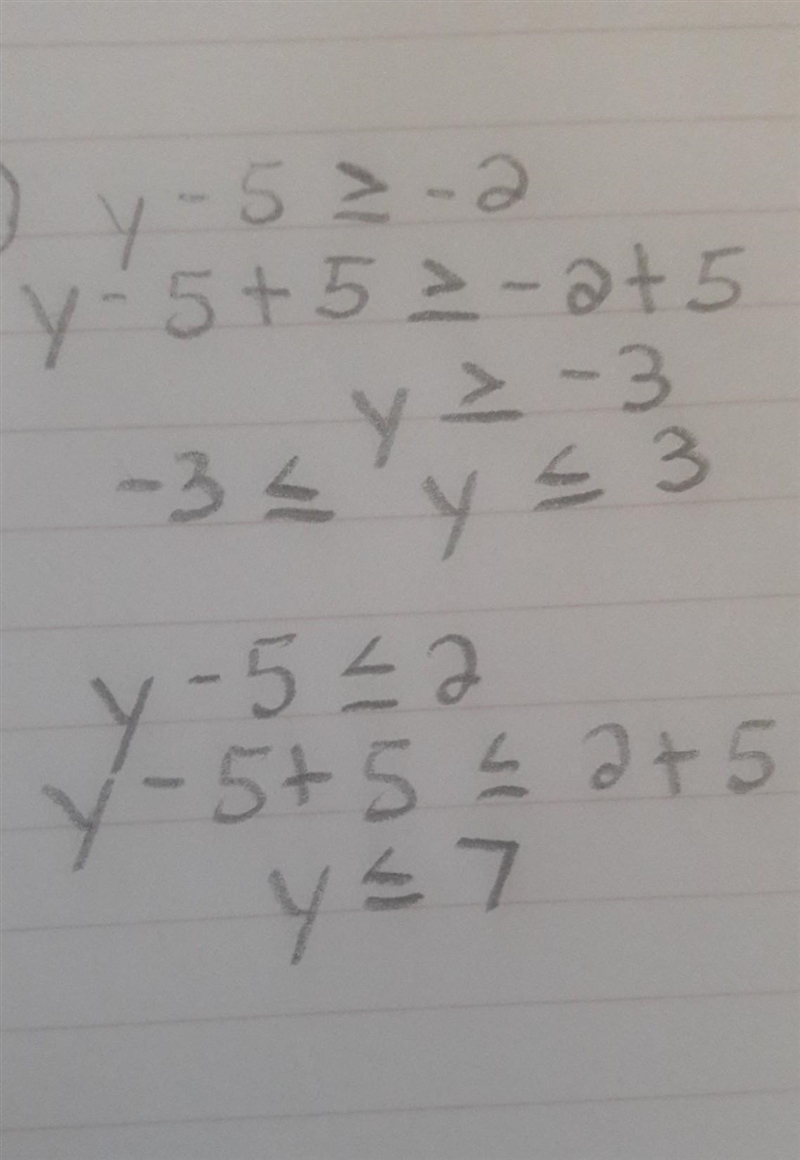 ) y - 5 ≥ - 2
y - 5 + 5 ≥ - 2 + 5
y ≥ - 3
-3 ≤ y ≤ 3
y - 5 ≤ 2
y - 5 + 5 ≤ 2 + 5
y ≤ 7